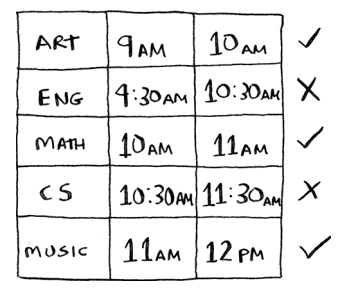 ART 9AM 10AM ✓
ENG 9:30AM 10:30AM ✗
MATH 10AM 11AM ✓
CS 10:30AM 11:30AM ✗
MUSIC 11AM 12PM ✓